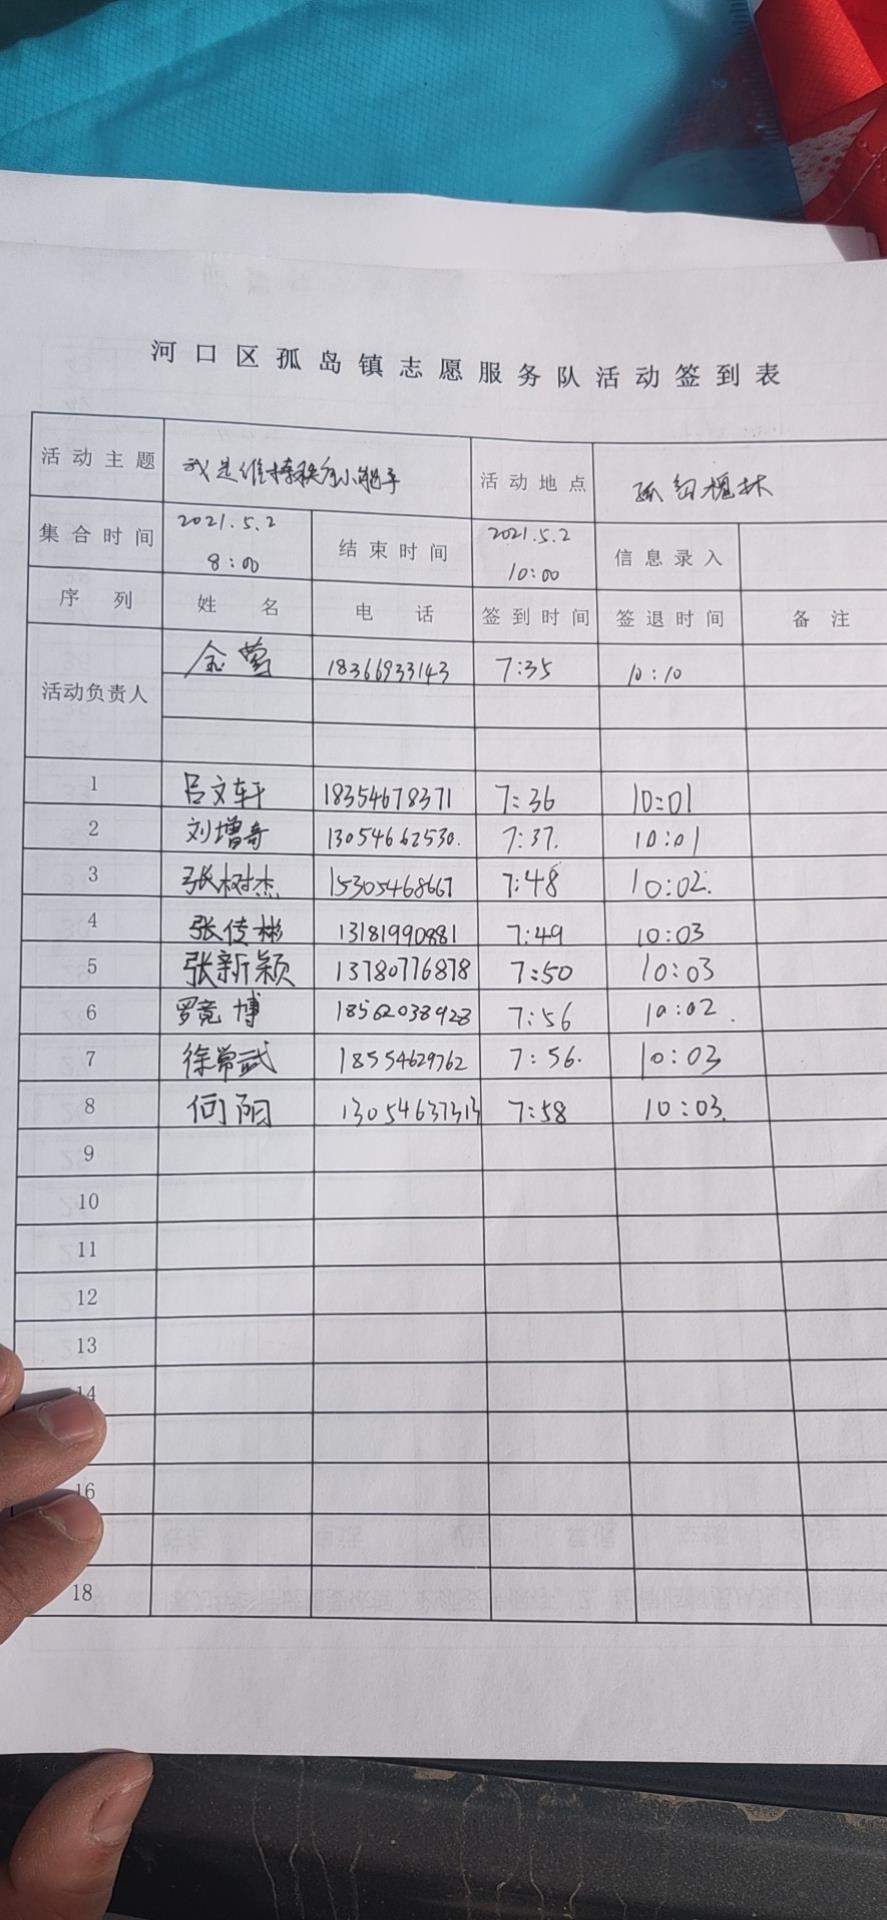 河口区孤岛镇志愿服务队活动签到表
活动主题 我是维持秩序小能手 活动地点 孤岛槐林
集合时间 2021.5.2 8:00 结束时间 2021.5.2 10:00 信息录入
序列 姓名 电话 签到时间 签退时间 备注
活动负责人 金莺 18366933143 7:35 10:10
1 吕文轩 18354678371 7:36 10:01
2 刘增奇 13054662530. 7:37. 10:01
3 张树杰 15305468667 7:48 10:02.
4 张传彬 13181990881 7:49 10:03
5 张新颖 13780776878 7:50 10:03
6 罗竟博 18562038928 7:56 10:02.
7 徐常武 18554629762 7:56. 10:03
8 何阳 13054637313 7:58 10:03.
9
10
11
12
13
14
16
18